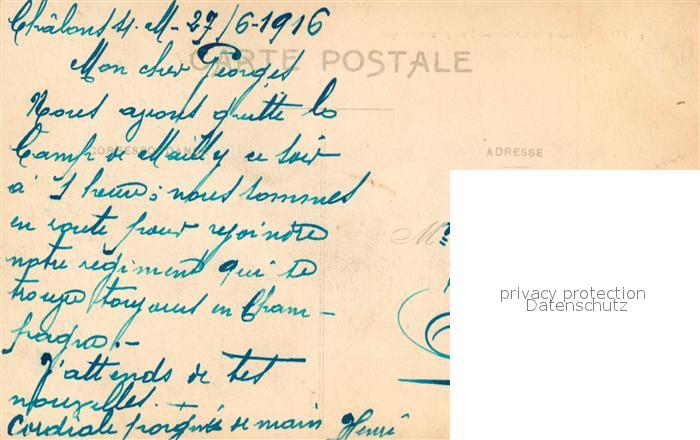 Châlons s. M - 27/6-1916
CARTE POSTALE
Mon cher Georges
Nous avons quitté le
CORRESPONDANCE
Camp de Mailly ce soir
ADRESSE
à 1 heure ; nous sommes
en route pour rejoindre
M
notre régiment qui se
trouve toujours en Cham-
pagne.-
privacy protection
Datenschutz
J'attends de tes
nouvelles.
Cordiale poignée de main Henri